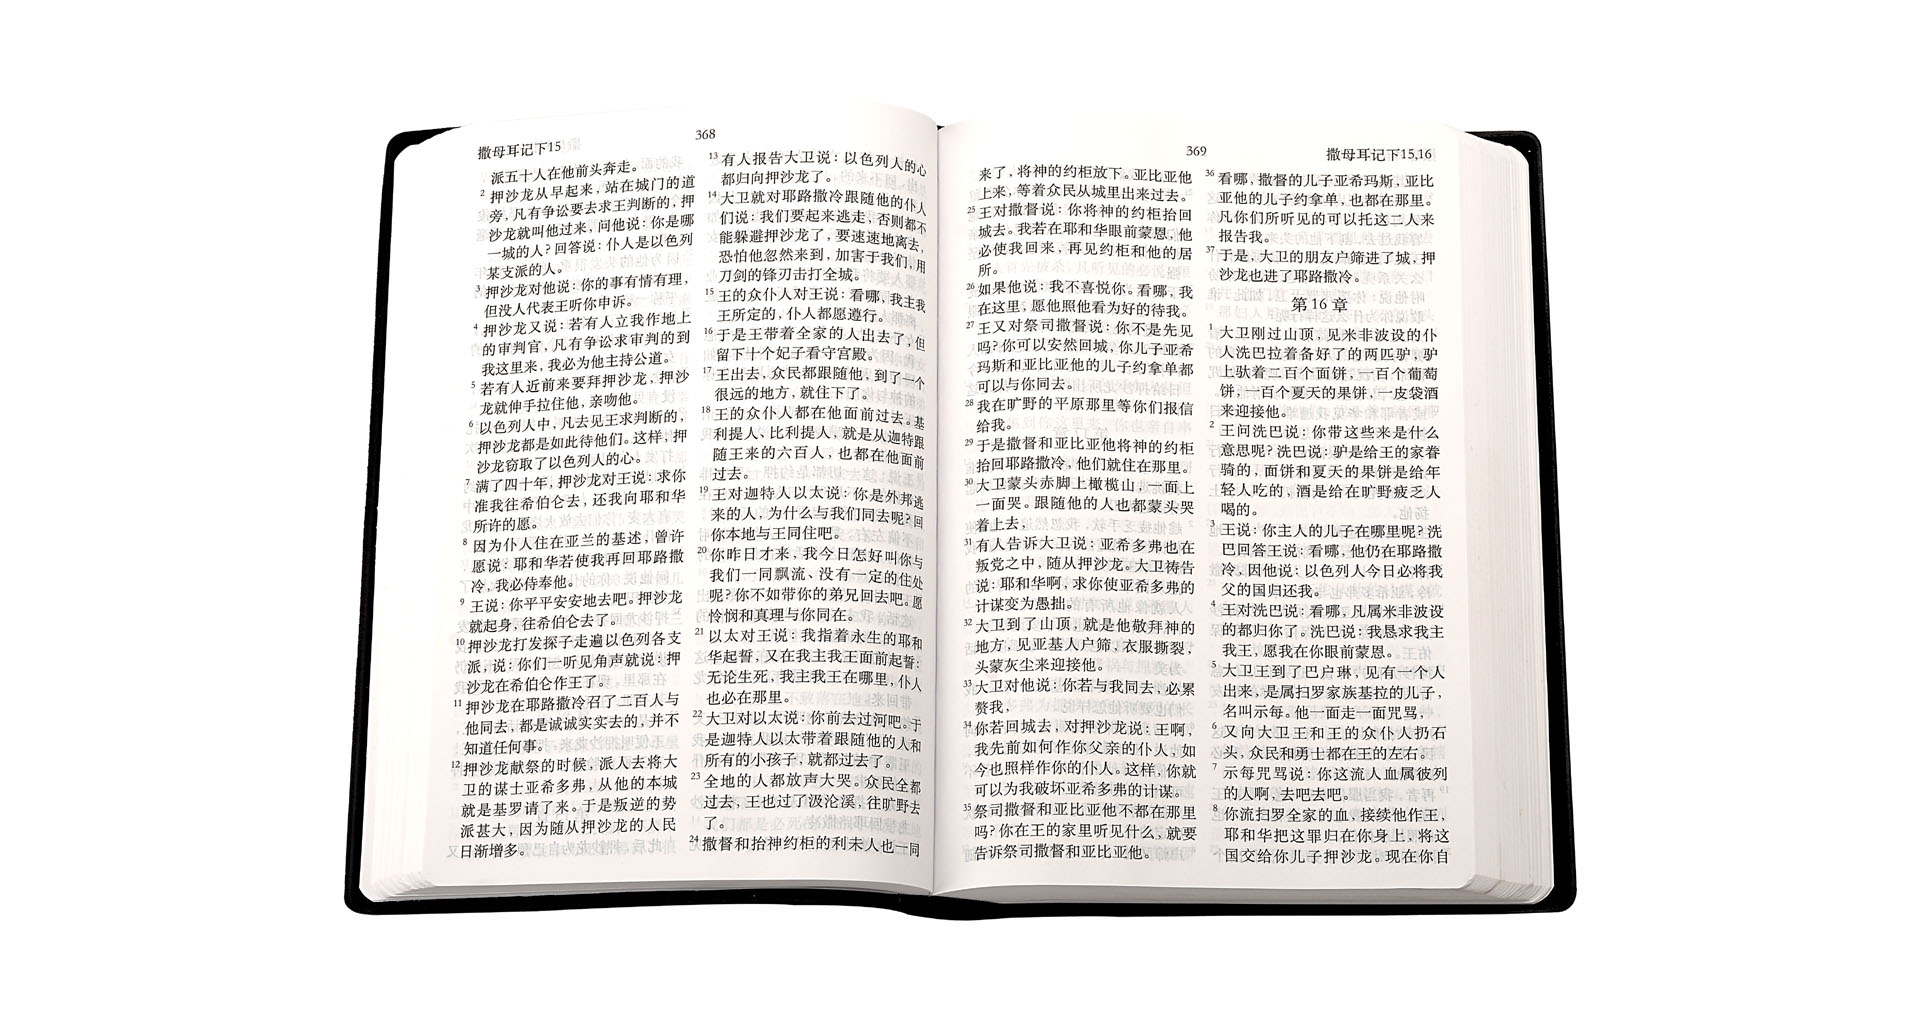 368
撒母耳记下15
派五十人在他前头奔走。
2 押沙龙从早起来，站在城门的道
旁，凡有争讼要去求王判断的，押
沙龙就叫他过来，问他说：你是哪
一城的人？回答说：仆人是以色列
某支派的人。
3 押沙龙对他说：你的事有情有理，
但没人代表王听你申诉。
4 押沙龙又说：若有人立我作地上
的审判官，凡有争讼求审判的到
我这里来，我必为他主持公道。
5 若有人近前来要拜押沙龙，押沙
龙就伸手拉住他，亲吻他。
6 以色列人中，凡去见王求判断的，
押沙龙都是如此待他们。这样，押
沙龙窃取了以色列人的心。
7 满了四十年，押沙龙对王说：求你
准我往希伯仑去，还我向耶和华
所许的愿。
8 因为仆人住在亚兰的基述，曾许
愿说：耶和华若使我再回耶路撒
冷，我必侍奉他。
9 王说：你平平安安地去吧。押沙龙
就起身，往希伯仑去了。
10 押沙龙打发探子走遍以色列各支
派，说：你们一听见角声就说：押
沙龙在希伯仑作王了。
11 押沙龙在耶路撒冷召了二百人与
他同去，都是诚诚实实去的，并不
知道任何事。
12 押沙龙献祭的时候，派人去将大
卫的谋士亚希多弗，从他的本城
就是基罗请了来。于是叛逆的势
派甚大，因为随从押沙龙的人民
日渐增多。
13 有人报告大卫说：以色列人的心
都归向押沙龙了。
14 大卫就对耶路撒冷跟随他的仆人
们说：我们要起来逃走，否则都不
能躲避押沙龙了，要速速地离去，
恐怕他忽然来到，加害于我们，用
刀剑的锋刃击打全城。
15 王的众仆人对王说：看哪，我主我
王所定的，仆人都愿遵行。
16 于是王带着全家的人出去了，但
留下十个妃子看守宫殿。
17 王出去，众民都跟随他，到了一个
很远的地方，就住下了。
18 王的众仆人都在他面前过去。基
利提人、比利提人，就是从迦特跟
随王来的六百人，也都在他面前
过去。
19 王对迦特人以太说：你是外邦逃
来的人，为什么与我们同去呢？回
你本地与王同住吧。
20 你昨日才来，我今日怎好叫你与
我们一同飘流、没有一定的住处
呢？你不如带你的弟兄回去吧。愿
怜悯和真理与你同在。
21 以太对王说：我指着永生的耶和
华起誓，又在我主我王面前起誓：
无论生死，我主我王在哪里，仆人
也必在那里。
22 大卫对以太说：你前去过河吧。于
是迦特人以太带着跟随他的人和
所有的小孩子，就都过去了。
23 全地的人都放声大哭。众民全都
过去，王也过了汲沦溪，往旷野去
了。
24 撒督和抬神约柜的利未人也一同
369
撒母耳记下15,16
来了，将神的约柜放下。亚比亚他
上来，等着众民从城里出来过去。
25 王对撒督说：你将神的约柜抬回
城去。我若在耶和华眼前蒙恩，他
必使我回来，再见约柜和他的居
所。
26 如果他说：我不喜悦你。看哪，我
在这里，愿他照他看为好的待我。
27 王又对祭司撒督说：你不是先见
吗？你可以安然回城，你儿子亚希
玛斯和亚比亚他的儿子约拿单都
可以与你同去。
28 我在旷野的平原那里等你们报信
给我。
29 于是撒督和亚比亚他将神的约柜
抬回耶路撒冷，他们就住在那里。
30 大卫蒙头赤脚上橄榄山，一面上
一面哭。跟随他的人也都蒙头哭
着上去，
31 有人告诉大卫说：亚希多弗也在
叛党之中，随从押沙龙。大卫祷告
说：耶和华啊，求你使亚希多弗的
计谋变为愚拙。
32 大卫到了山顶，就是他敬拜神的
地方，见亚基人户筛，衣服撕裂，
头蒙灰尘来迎接他。
33 大卫对他说：你若与我同去，必累
赘我，
34 你若回城去，对押沙龙说：王啊，
我先前如何作你父亲的仆人，如
今也照样作你的仆人。这样，你就
可以为我破坏亚希多弗的计谋。
35 祭司撒督和亚比亚他不都在那里
吗？你在王的家里听见什么，就要
告诉祭司撒督和亚比亚他。
36 看哪，撒督的儿子亚希玛斯，亚比
亚他的儿子约拿单，也都在那里。
凡你们所听见的可以托这二人来
报告我。
37 于是，大卫的朋友户筛进了城，押
沙龙也进了耶路撒冷。
第 16 章
1 大卫刚过山顶，见米非波设的仆
人洗巴拉着备好了的两匹驴，驴
上驮着二百个面饼，一百个葡萄
饼，一百个夏天的果饼，一皮袋酒
来迎接他。
2 王问洗巴说：你带这些来是什么
意思呢？洗巴说：驴是给王的家眷
骑的，面饼和夏天的果饼是给年
轻人吃的，酒是给在旷野疲乏人
喝的。
3 王说：你主人的儿子在哪里呢？洗
巴回答王说：看哪，他仍在耶路撒
冷，因他说：以色列人今日必将我
父的国归还我。
4 王对洗巴说：看哪，凡属米非波设
的都归你了。洗巴说：我恳求我主
我王，愿我在你眼前蒙恩。
5 大卫王到了巴户琳，见有一个人
出来，是属扫罗家族基拉的儿子，
名叫示每。他一面走一面咒骂，
6 又向大卫王和王的众仆人扔石
头，众民和勇士都在王的左右。
7 示每咒骂说：你这流人血属彼列
的人啊，去吧去吧。
8 你流扫罗全家的血，接续他作王，
耶和华把这罪归在你身上，将这
国交给你儿子押沙龙。现在你自